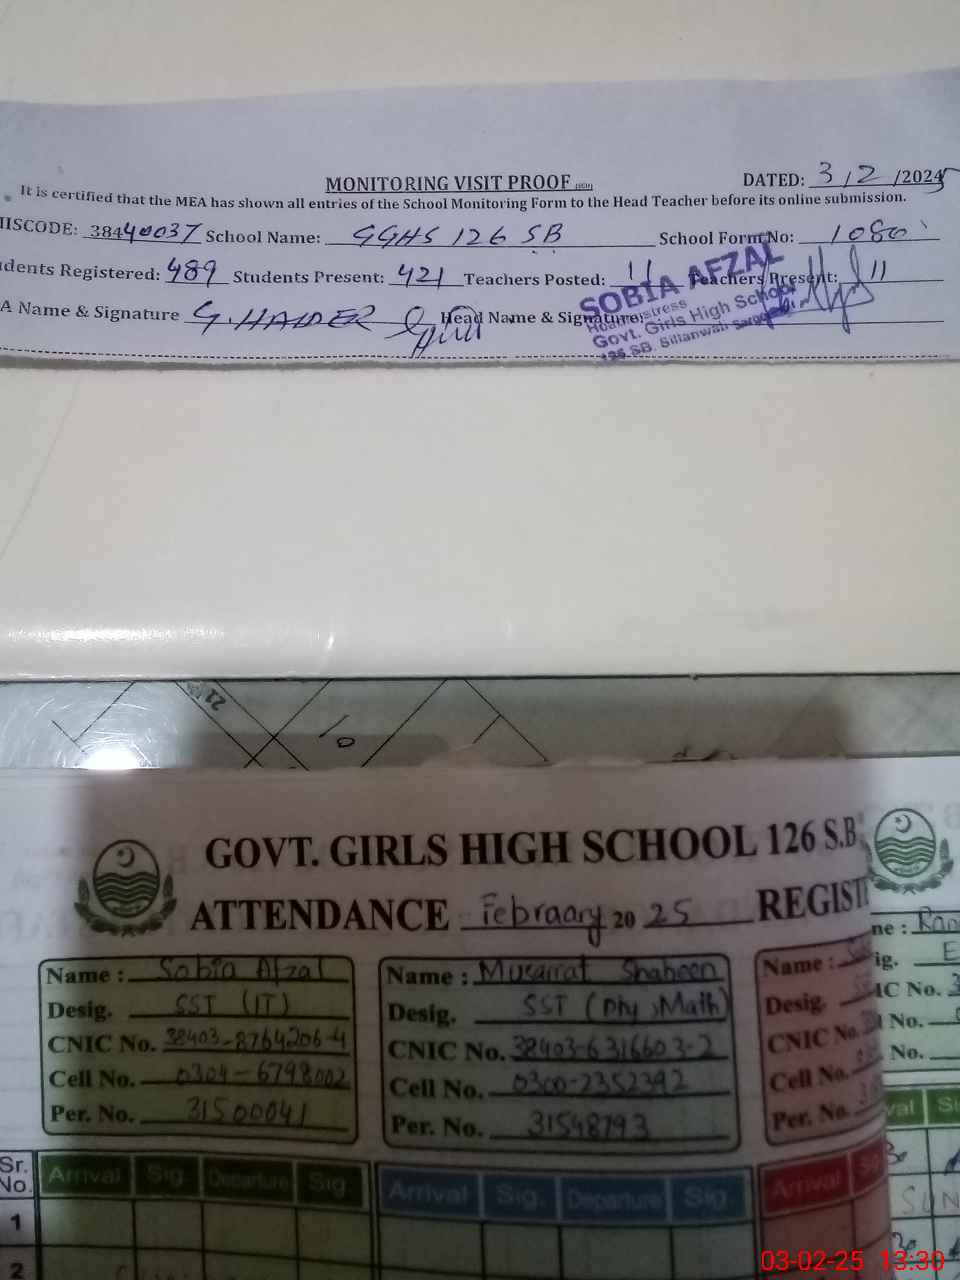 MONITORING VISIT PROOF
DATED: 3/2/2025
It is certified that the MEA has shown all entries of the School Monitoring Form to the Head Teacher before its online submission.
IISCODE: 38440037 School Name: GGHS 126 SB School Form No: 1080
dents Registered: 489 Students Present: 421 Teachers Posted: 11 Teachers Present: 11
A Name & Signature G.HAIDER Head Name & Signature:
SOBIA AFZAL
Headmistress
Govt. Girls High School
126 SB, Sillanwali Sargodha
21
GOVT. GIRLS HIGH SCHOOL 126 S.B
ATTENDANCE Febraary 20 25 REGIST
Name : Sobia Afzal
Desig. SST (IT)
CNIC No. 38403-8764206-4
Cell No. 0304-6798002
Per. No. 31500041
Name : Musarrat Shaheen
Desig. SST (Phy, Math)
CNIC No. 38403-6316603-2
Cell No. 0300-2352392
Per. No. 31548793
Name :
Desig.
CNIC No.
Cell No.
Per. No.
ne : Ran
ig. E
IC No. 3
No.
No.
Sr. No. Arrival Sig. Departure Sig. Arrival Sig. Departure Sig. Arrival
val
1 SUN
2
03-02-25 13:30